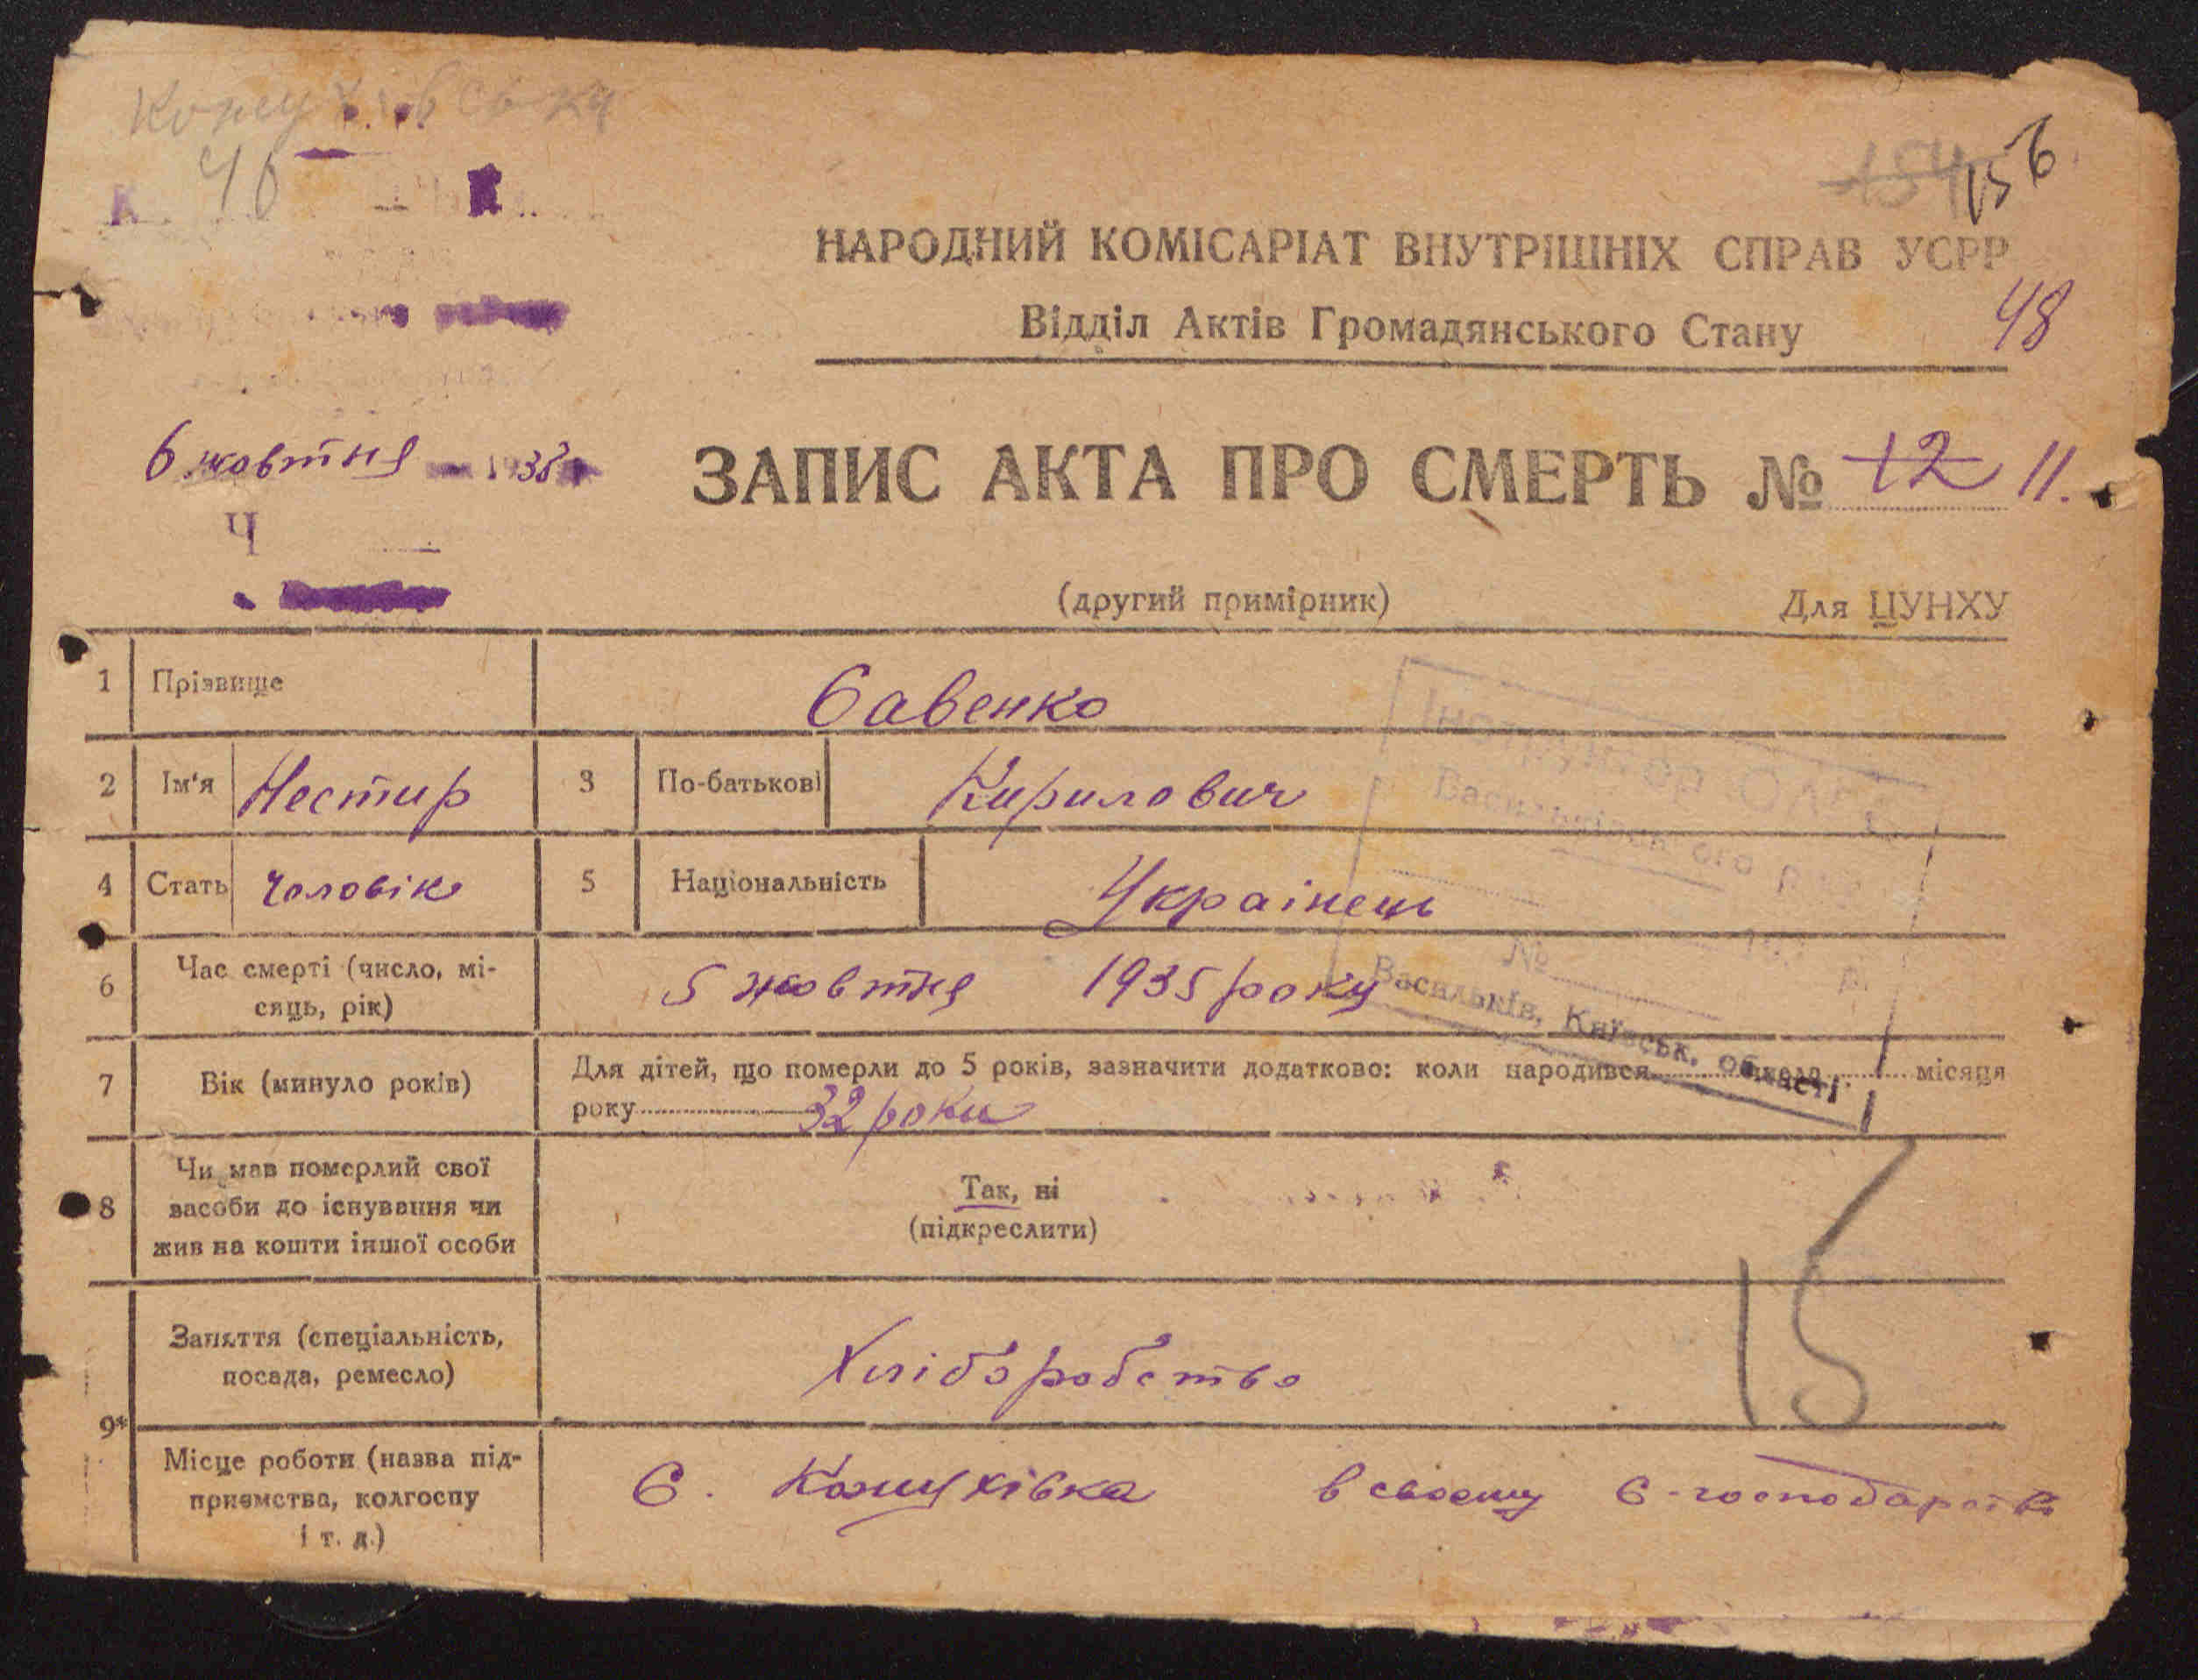 Кожухівська
46
154 156
НАРОДНИЙ КОМІСАРІАТ ВНУТРІШНІХ СПРАВ УСРР
Відділ Актів Громадянського Стану
48
6 жовтня 1935
ЗАПИС АКТА ПРО СМЕРТЬ № 12 11.
Ч
(другий примірник)
Для ЦУНХУ
1 Прізвище Савенко
2 Ім'я Нестир 3 По-батькові Кирилович
4 Стать чоловік 5 Національність Українець
6 Час смерті (число, мі-
сяць, рік)
5 жовтня 1935 року
Інструктор
Васильківського
№
Васильків, Київськ. області
7 Вік (минуло років)
Для дітей, що померли до 5 років, зазначити додатково: коли народився місяця
року 32 роки
8 Чи мав померлий свої
засоби до існування чи
жив на кошти іншої особи
Так, ні
(підкреслити)
15
9*
Заняття (спеціальність,
посада, ремесло)
Хліборобство
Місце роботи (назва під-
приємства, колгоспу
і т. д.)
С. Кожухівка в своєму с-господарстві